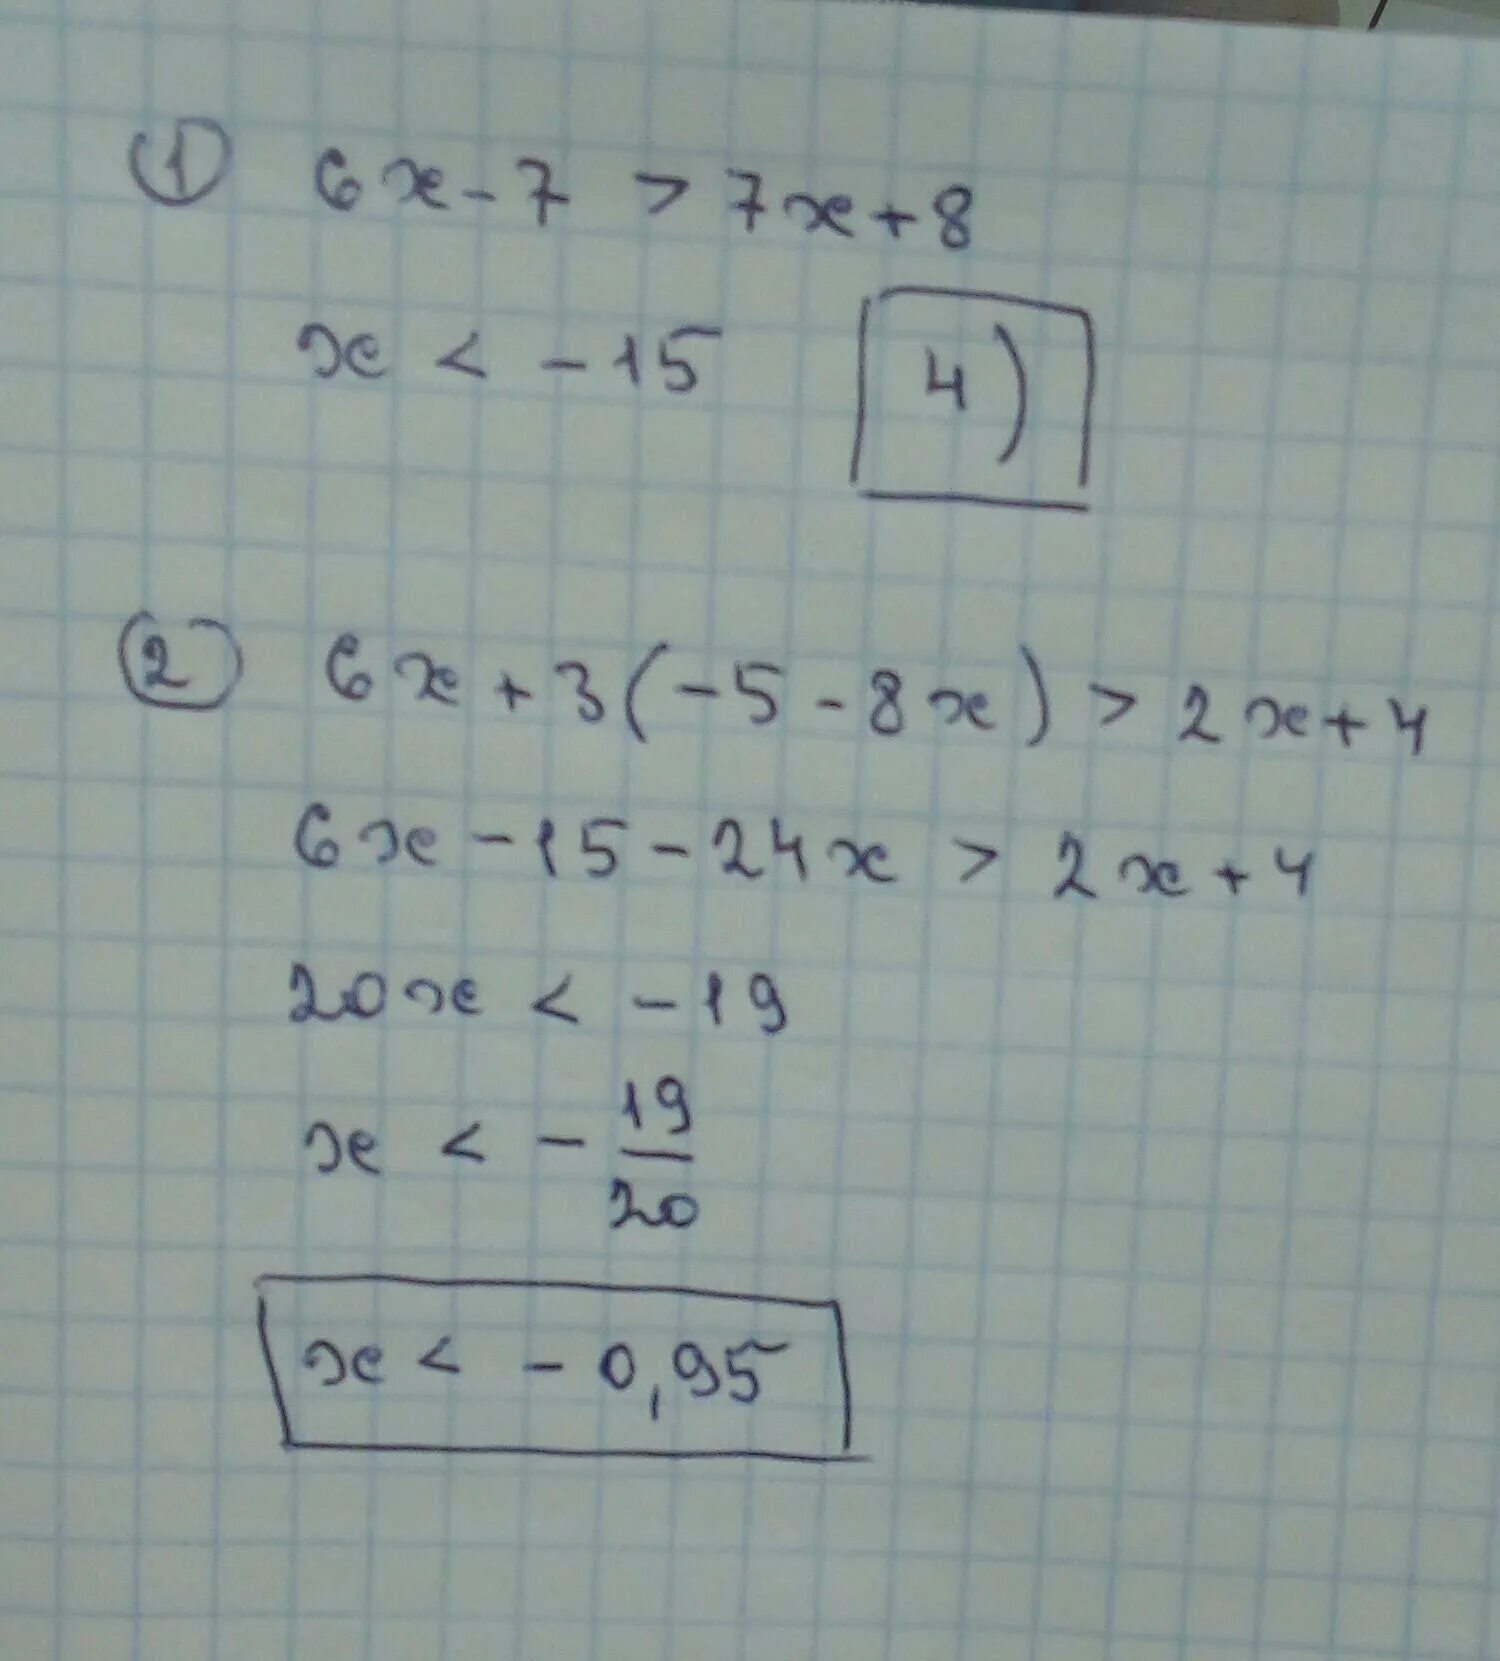 ① 6x - 7 > 7x + 8
x < - 15 4)
② 6x + 3(-5 - 8x) > 2x + 4
6x - 15 - 24x > 2x + 4
20x < - 19
x < - 19/20
x < - 0,95